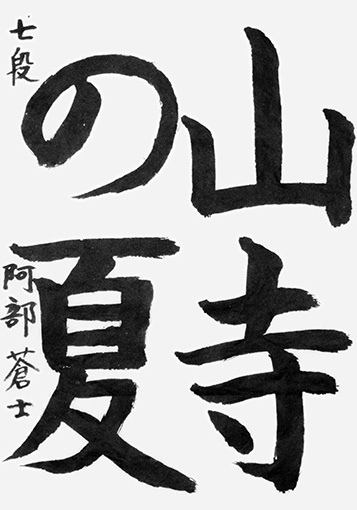 山寺
の夏
七段 阿部蒼士